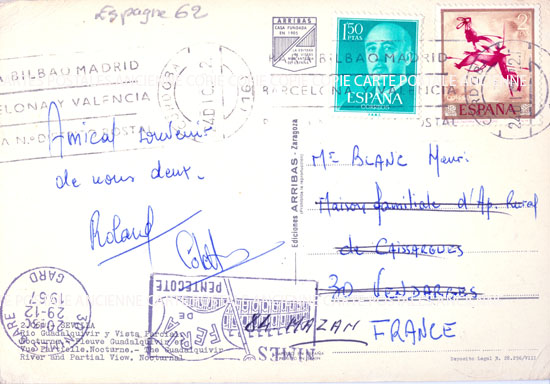 Espagne 62
ARRIBAS
CASA FUNDADA
EN 1905
1'50
PTAS
CORREOS
ESPAÑA
2
PTAS
ESPAÑA
A BILBAO MADRID
BARCELONA Y VALENCIA
POSTAL
BILBAO MADRID
BARCELONA Y VALENCIA
POSTAL
CARTE POSTALE
Amical souvenir
de nous deux.
Roland
Colette
Ediciones ARRIBAS - Zaragoza
Mr BLANC Henri
Maison familiale d'Ap. Rural
de CAISSARGUES
30 VENDARGUES
84 MAZAN
FRANCE
GARD
1967
29-12
PENTECOTE
FERIA
DE
NIMES
SEVILLA
Rio Guadalquivir y Vista Parcial,
Nocturna.- Fleuve Guadalquivir et
Vue Partielle, Nocturne.- The Guadalquivir
River and Partial View, Nocturnal
Deposito Legal